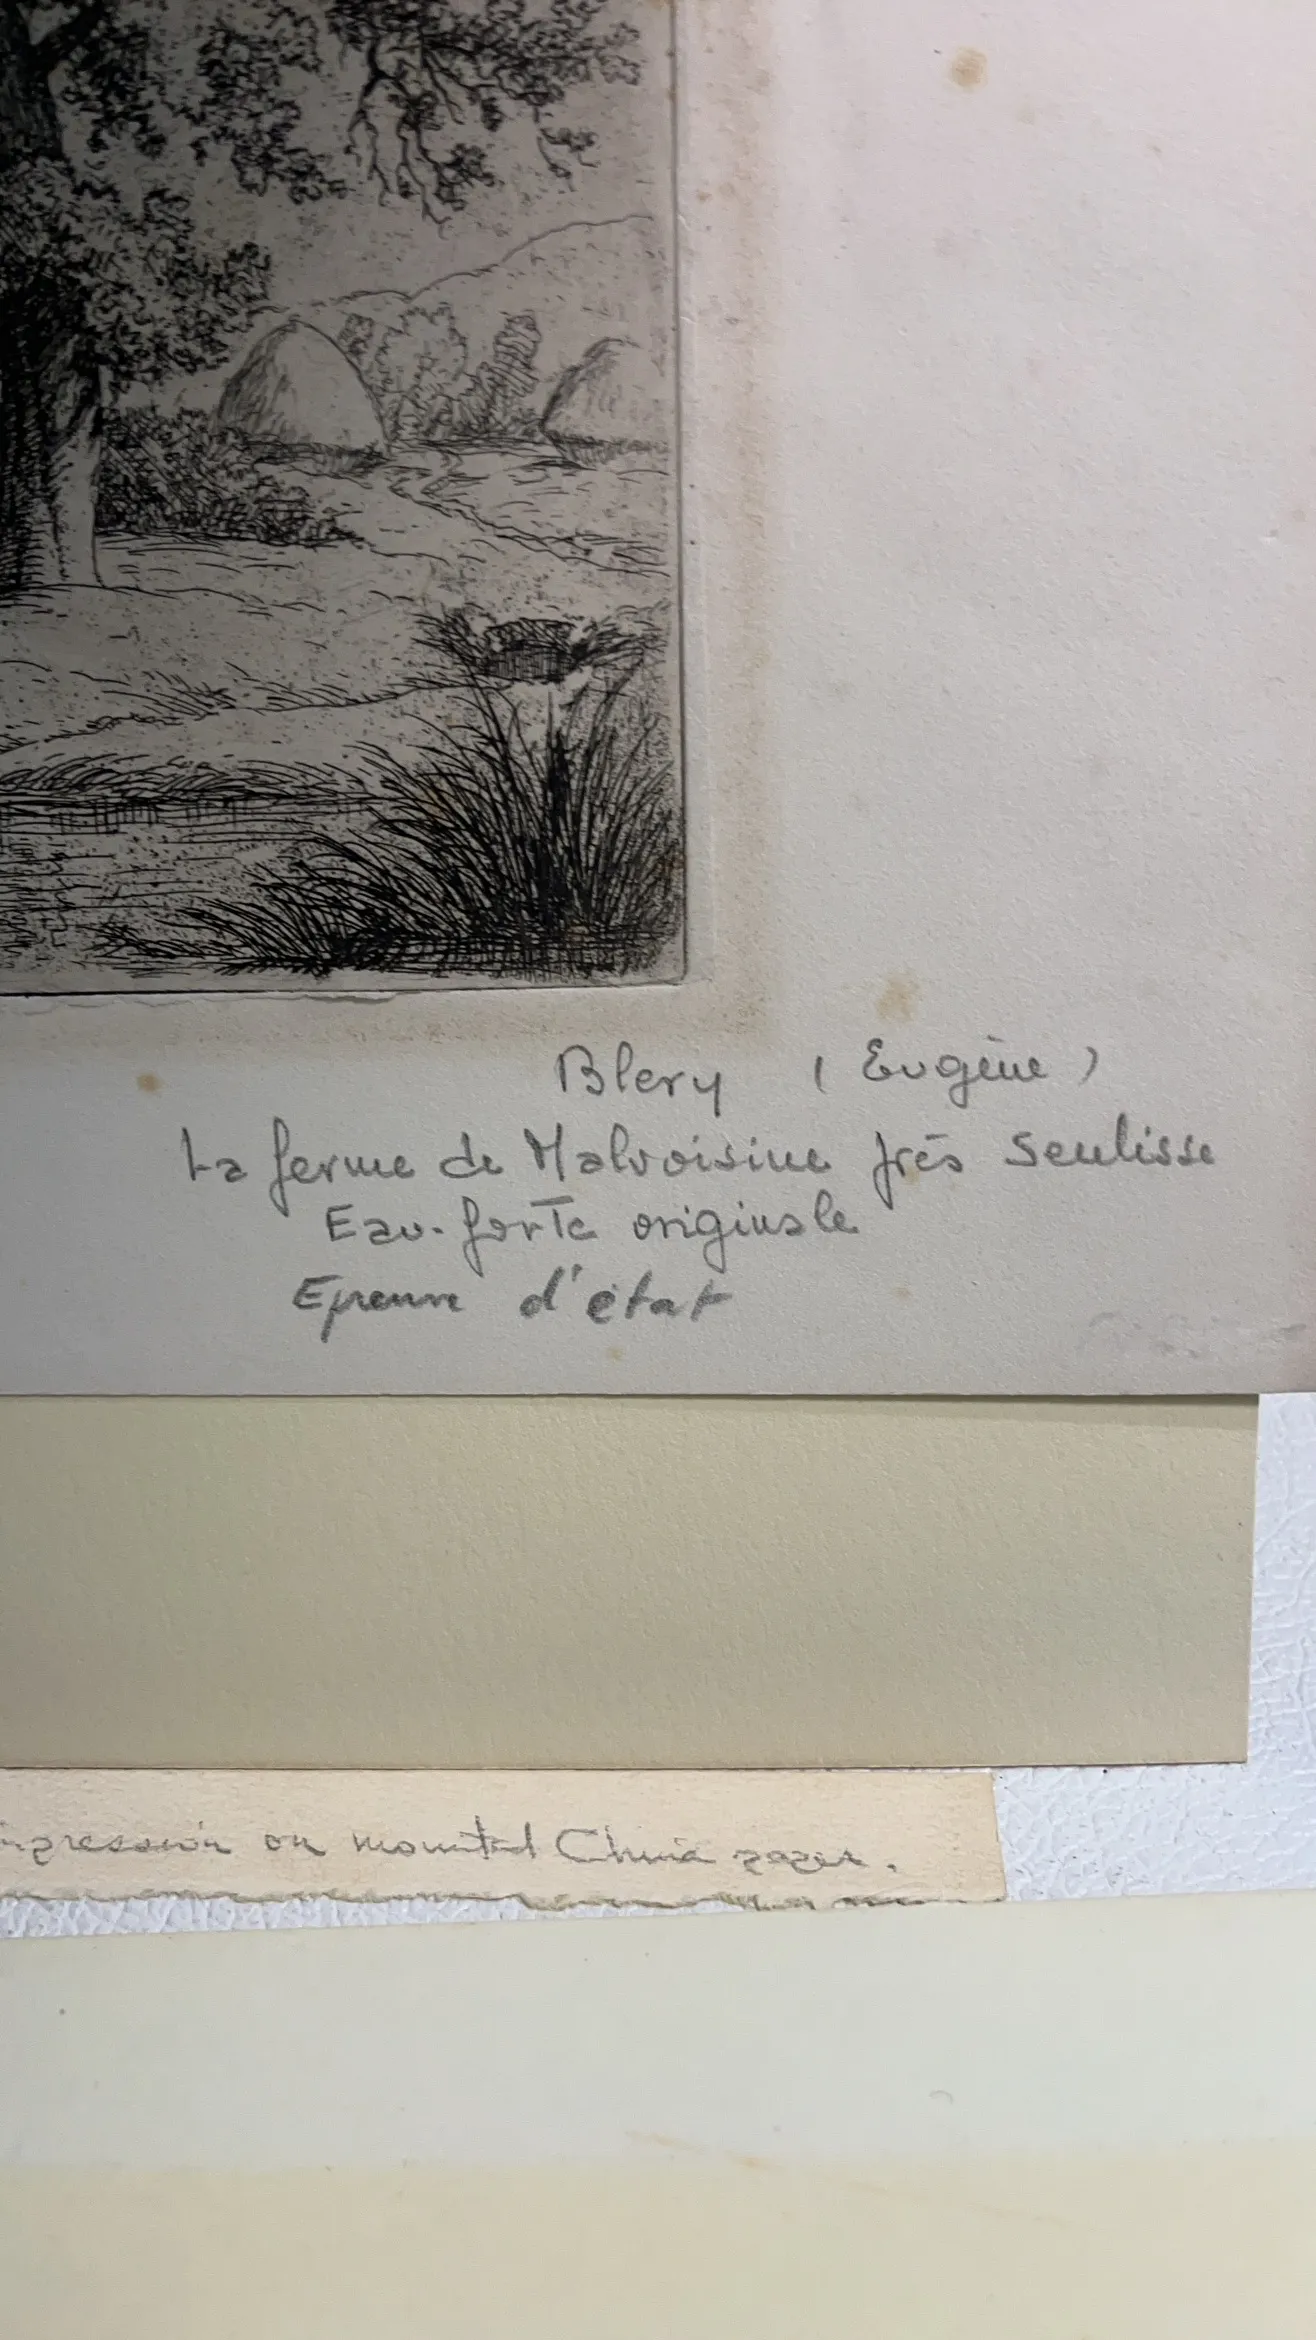 Blery ( Eugène )
La ferme de Malvoisine près Senlisse
Eau-forte originale
Epreuve d'état
impression on mounted China paper.